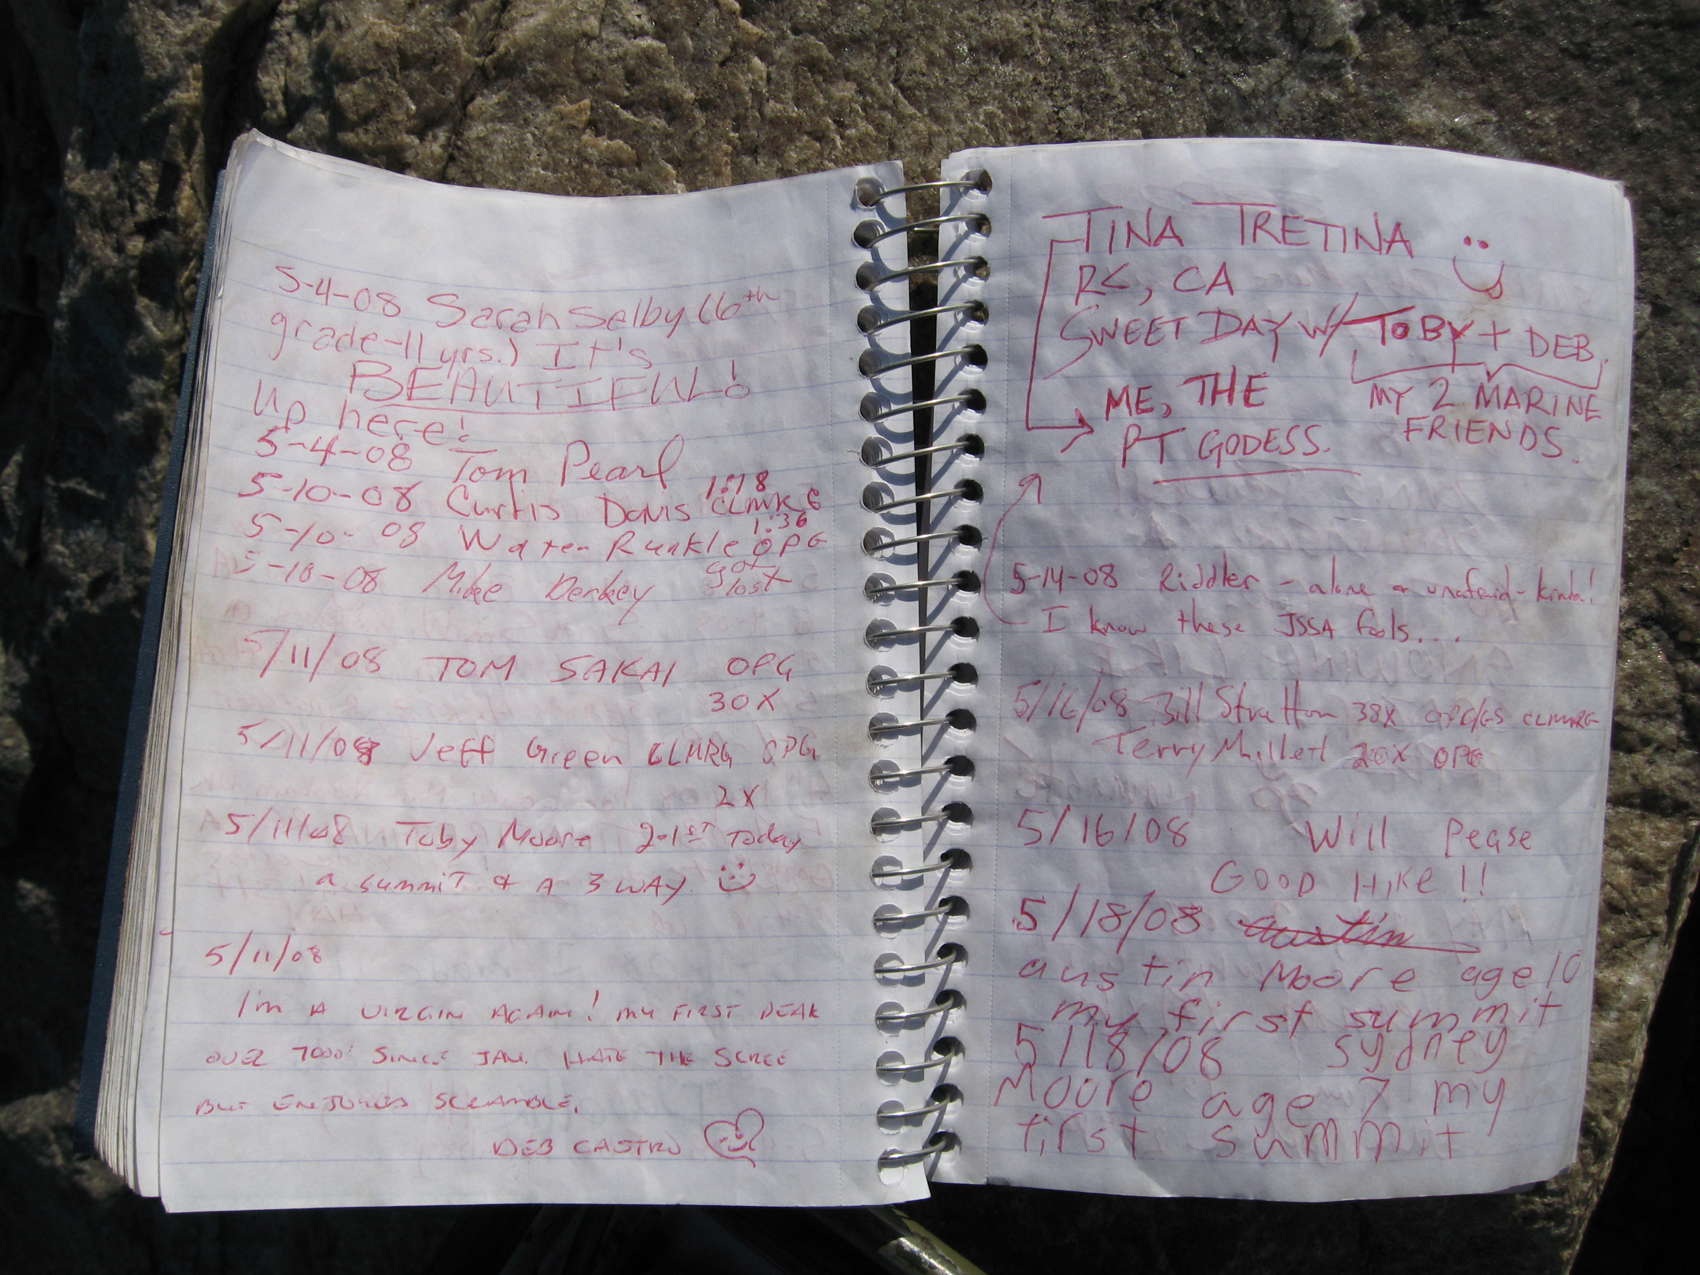 5-4-08 Sarah Selby (6th
grade-11 yrs.) It's
BEAUTIFUL!
up here!
5-4-08 Tom Pearl
5-10-08 Curtis Davis 1:18 CLMRG
5-10-08 Walter Runkle 1:36 OPG
5-10-08 Mike Denkey got lost
5/11/08 TOM SAKAI OPG
30X
5/11/08 Jeff Green CLMRG OPG
2X
5/11/08 Toby Moore 2-1ST Today
a summit & A 3 WAY
5/11/08
I'm A VIRGIN AGAIN! MY FIRST PEAK
OVER 7000' SINCE JAN. HATE THE SCREE
BUT ENJOYED SCRAMBLE.
DEB CASTRO
TINA TRETINA
RC, CA
SWEET DAY W/ TOBY + DEB.
MY 2 MARINE
FRIENDS.
ME, THE
PT GODESS.
5-14-08 Riddler - alone & unafraid - kinda!
I know these JSSA fools...
5/16/08 Bill Stratton 38X OPG/GS CLMRG
Terry Millet 20X OPG
5/16/08 Will Pease
GOOD HIKE!!
5/18/08 austin
austin Moore age 10
my first summit
5/18/08 sydney
Moore age 7 my
first summit